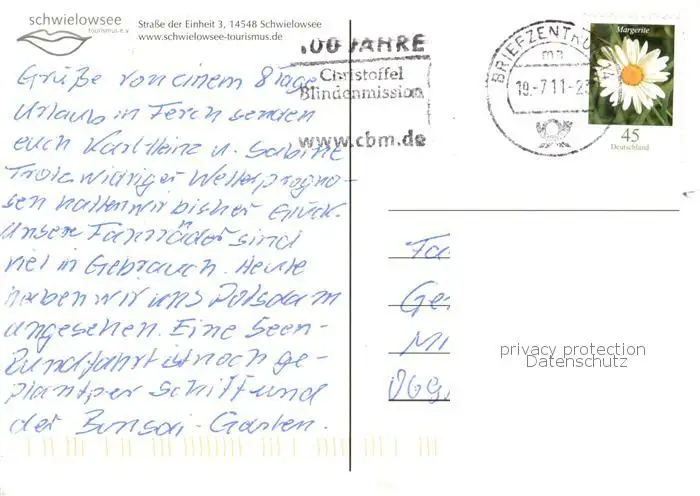 schwielowsee
tourismus e.V
Straße der Einheit 3, 14548 Schwielowsee
www.schwielowsee-tourismus.de
100 JAHRE
Christoffel
Blindenmission
www.cbm.de
BRIEFZENTRUM
ma
19.-7.11-2
Margerite
45
Deutschland
Grüße von einem 8 Tage
Urlaub in Ferch senden
euch Karl Heinz u. Sabine
Trotz widriger Wetterprogno-
sen hatten wir bisher Glück.
Unsere Fahrräder sind
viel in Gebrauch. Heute
haben wir uns Potsdam
angesehen. Eine Seen-
Rundfahrt ist noch ge-
plant per Schiff und
der Bonsai-Garten.
Fa
Ge
Mi
privacy protection
Datenschutz